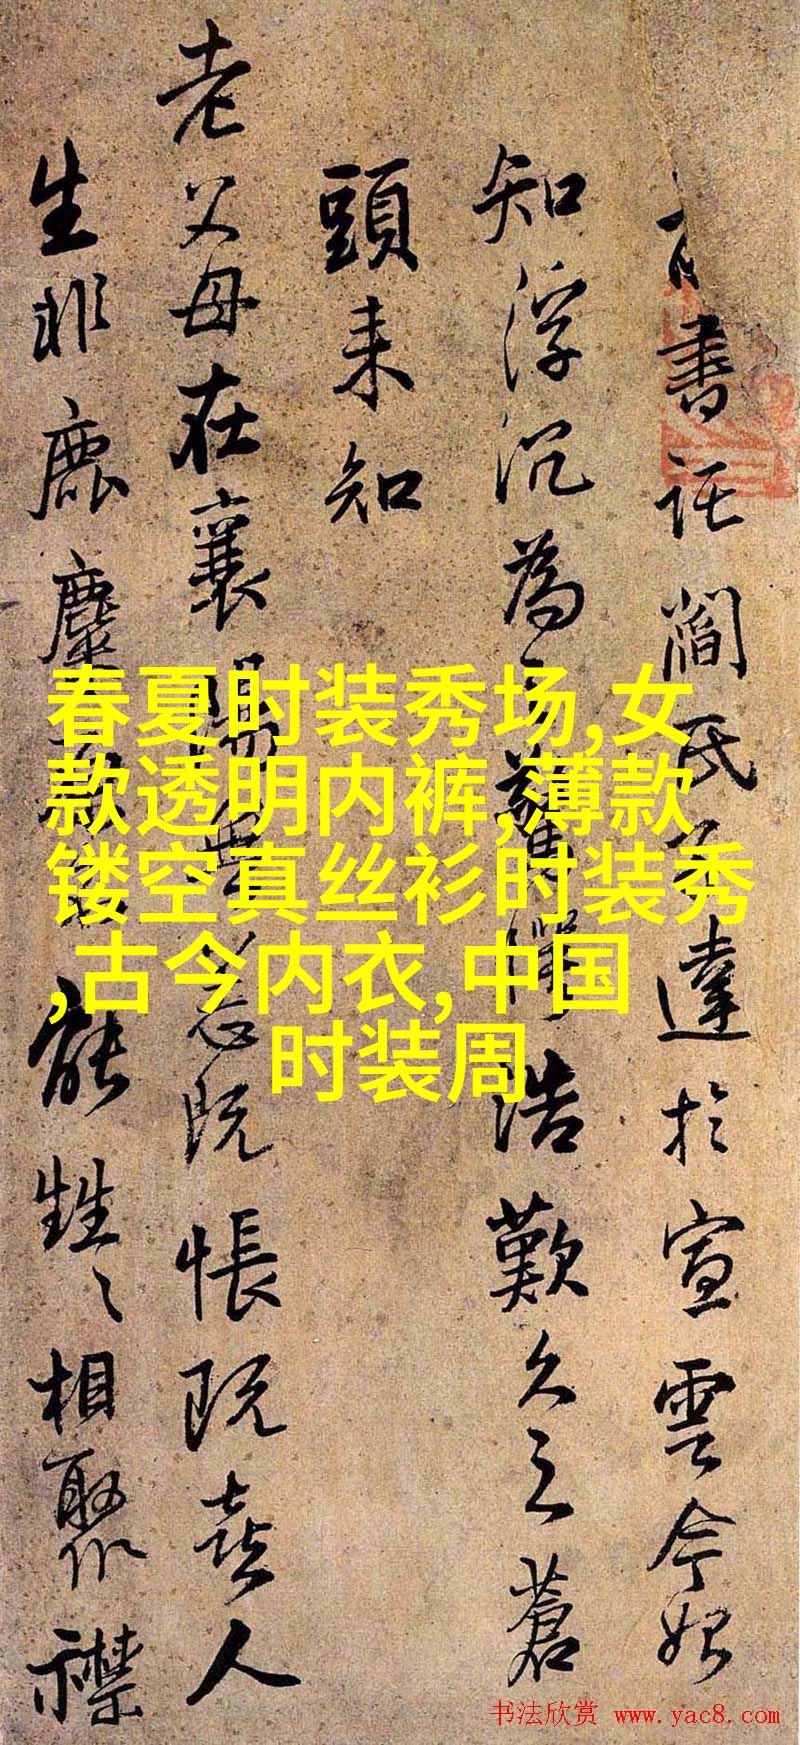 書託閻氏
達於宣雲今始
知浮沉為
浩歎久之蒼
頭未知
老父母在襄陽
既悵既喜人
生非鹿麋
能甡〻相聚
春夏时装秀场,女
款透明内裤,薄款
镂空真丝衫时装秀
,古今内衣,中国
时装周
书法欣赏 www.yac8.com